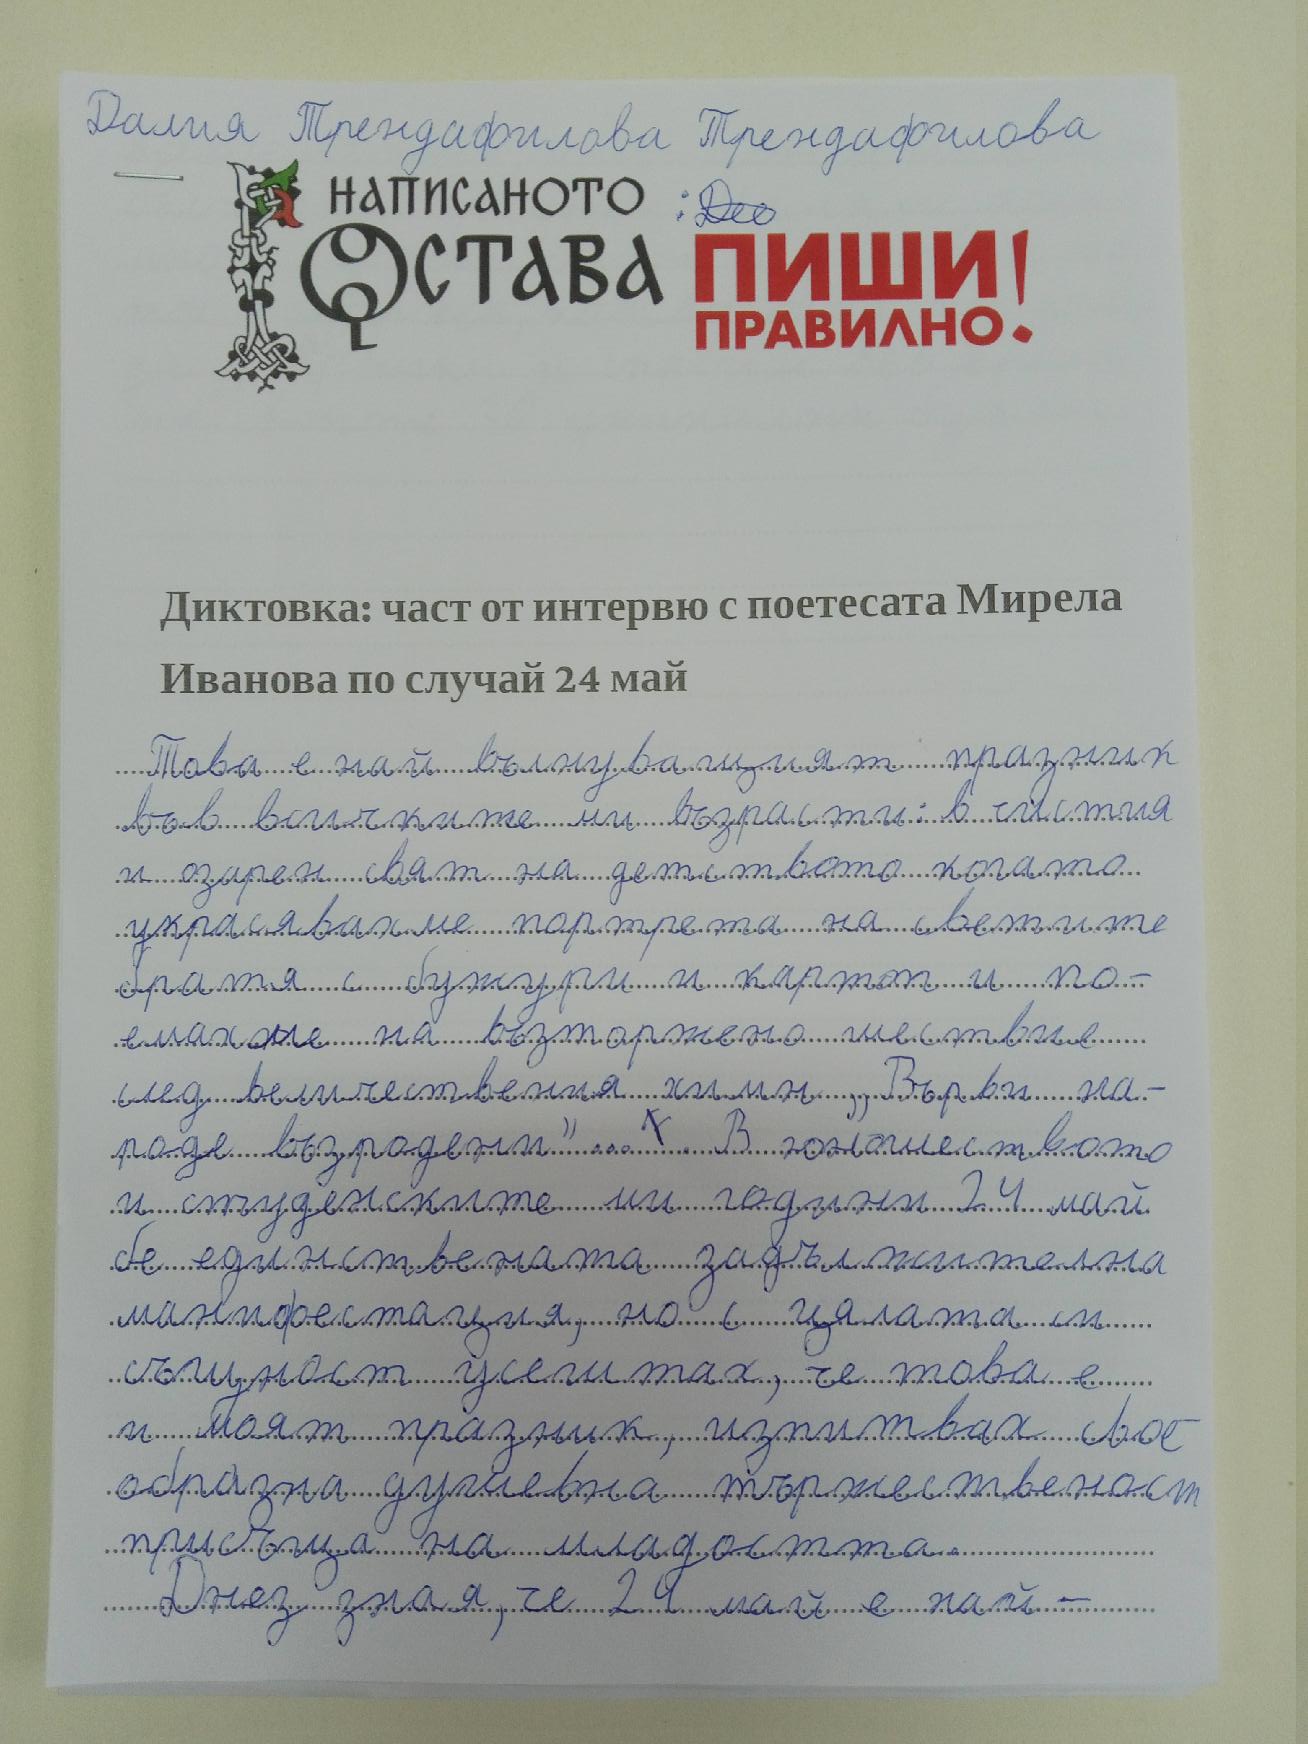 Далия Трендафилова Трендафилова
НАПИСАНОТО
ОСТАВА
ПИШИ
ПРАВИЛНО!
Диктовка: част от интервю с поетесата Мирела
Иванова по случай 24 май
Това е най вълнуващият празник
във всичките ми възрасти: в чистия
и озарен свят на детството когато
украсявахме портрета на светите
братя с бужури и картон и по-
емахме на възторжено шествие
след величествения химн „Върви на-
роде възродени" ... В юношеството
и студенските ми години 24 май
бе единствената задължителна
манифестация, но с цялата си
същност усещтах, че това е
и моят празник, изпитвах свое
образна душевна тържественост
присъща на младостта.
Днез зная, че 24 май е най-